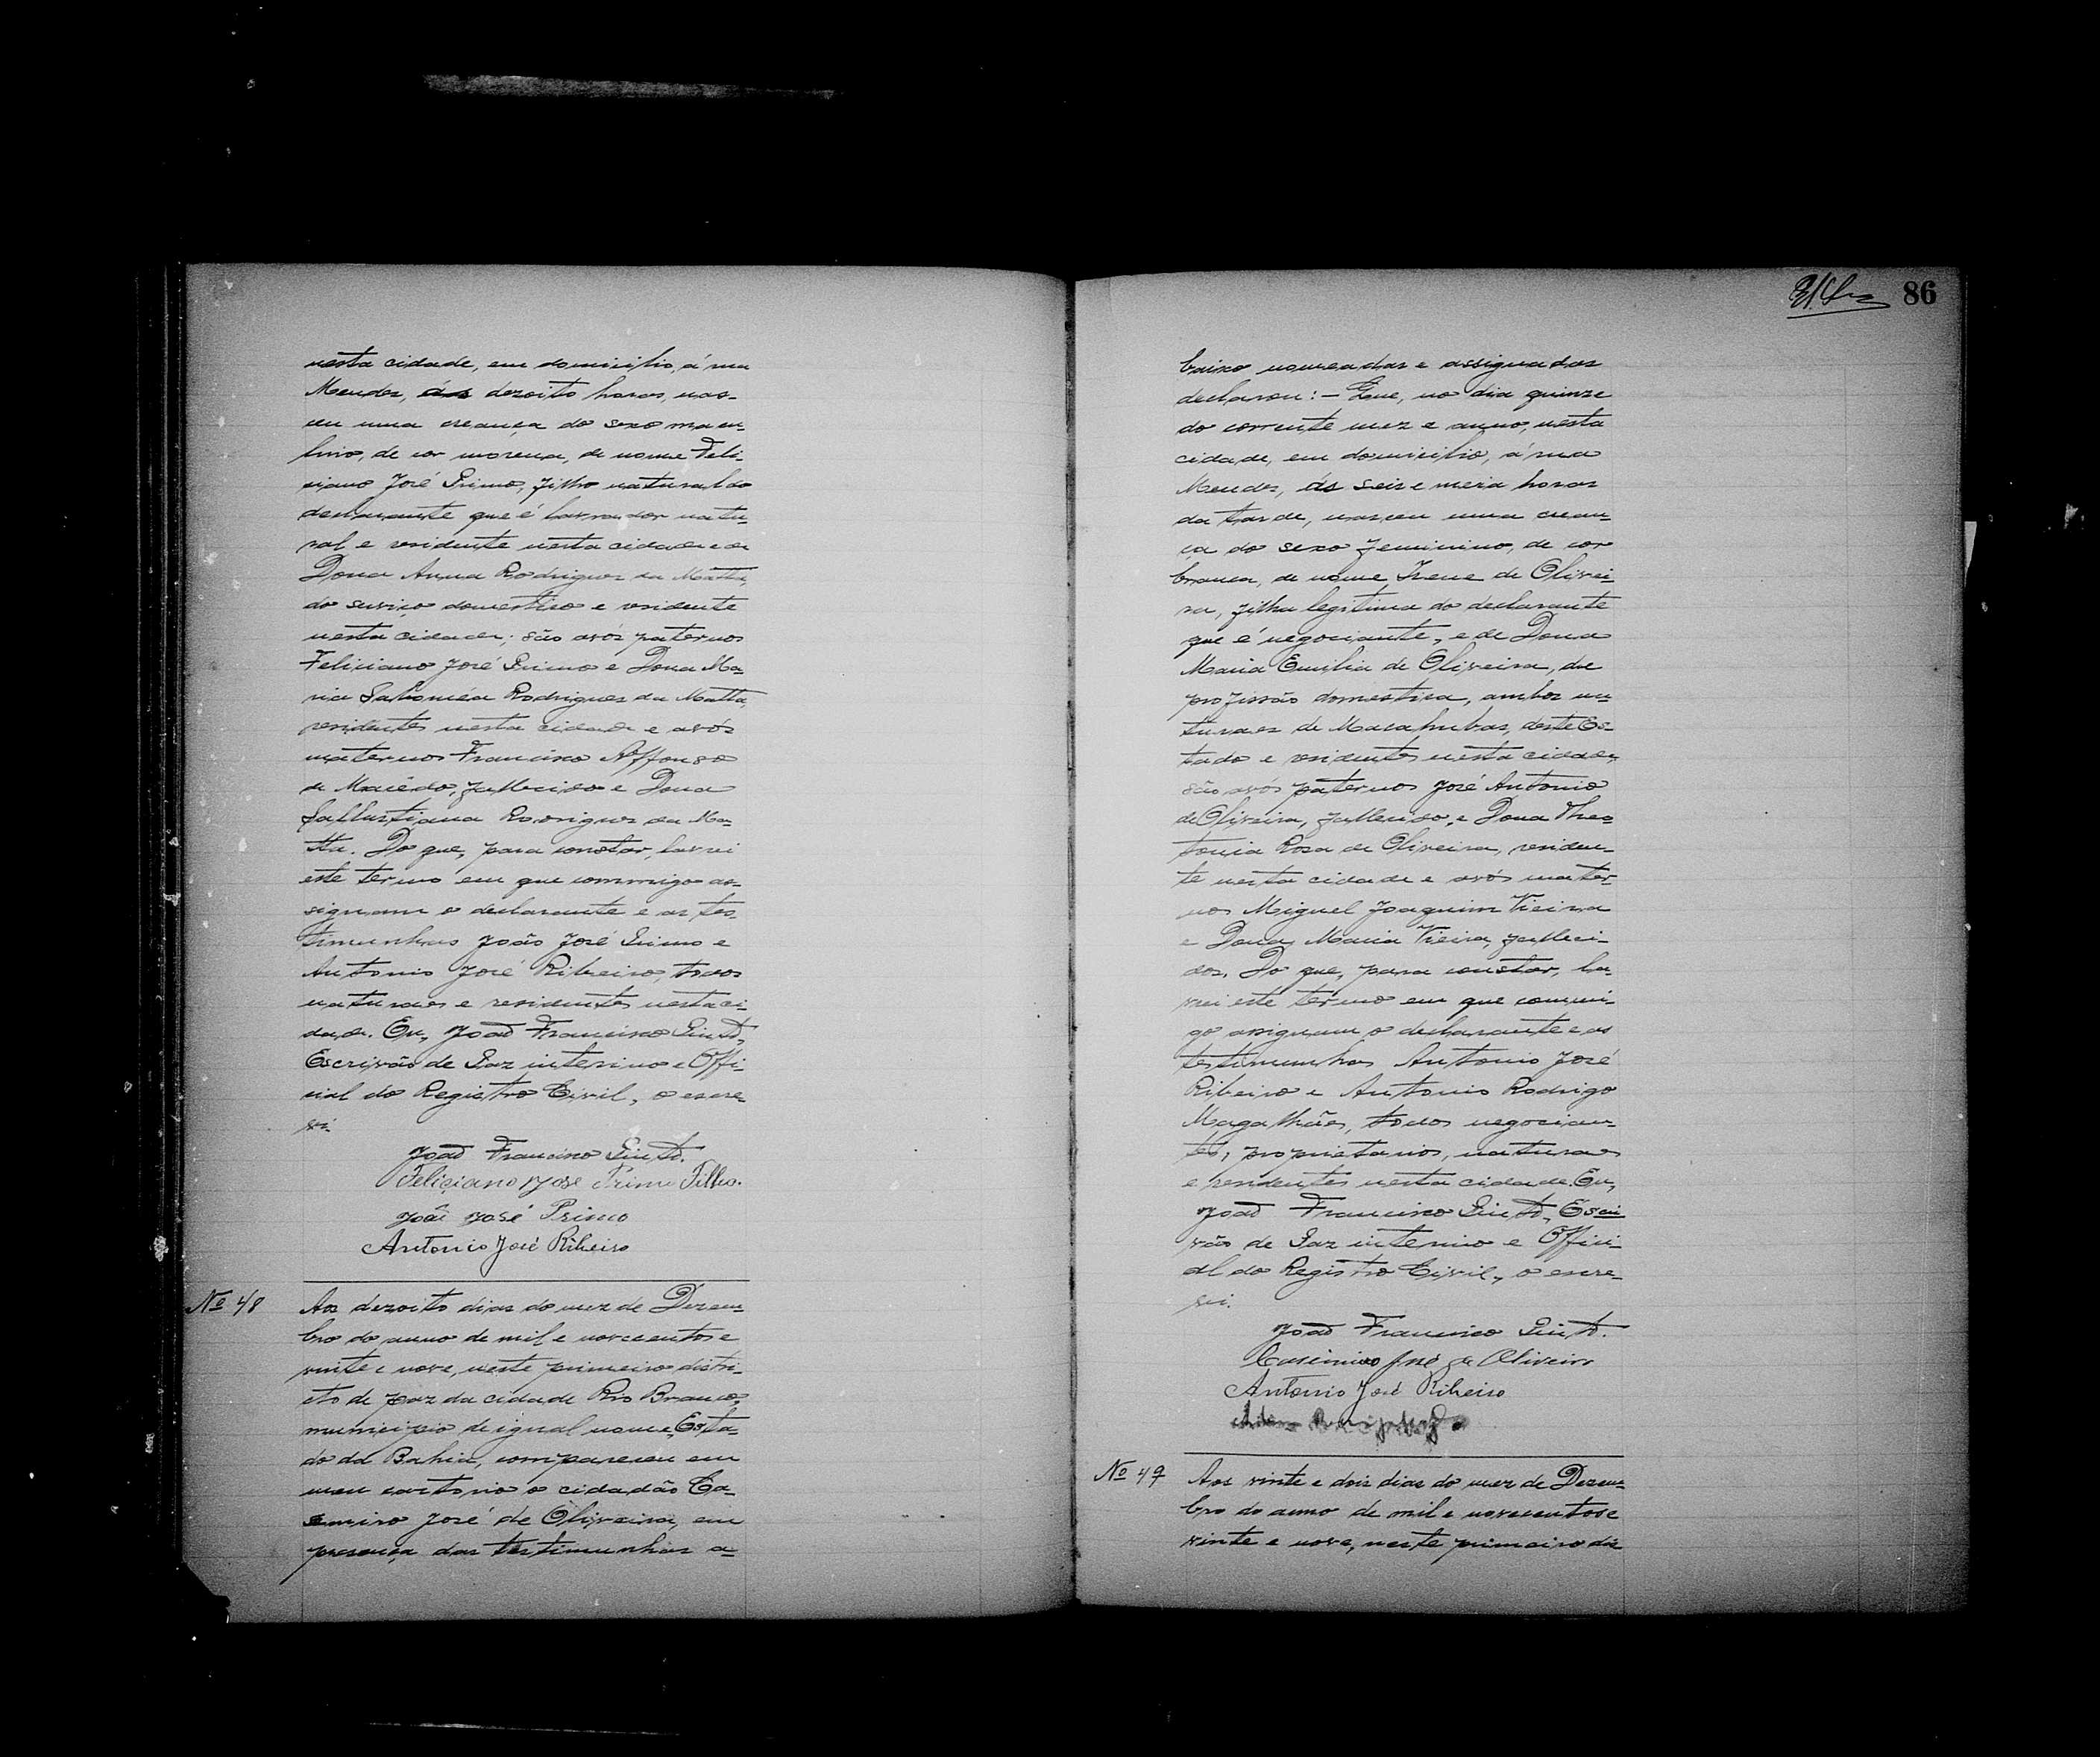 nesta cidade, em domicilio, á rua
Mendes, ás dezoito horas, nas-
ceu uma creança do sexo mascu-
lino, de cor morena, de nome Feli-
ciano José Primo, filho natural do
declarante que é lavrador natu-
ral e residente nesta cidade e de
Dona Anna Rodrigues da Matta,
do serviço domestico e residente
nesta cidade; são avós paternos
Feliciano José Primo e Dona Ma-
ria Saloméa Rodrigues da Matta,
residentes nesta cidade e avós
maternos Francisco Affonso
de Macêdo, fallecido e Dona
Sallustiana Rodrigues da Ma-
tta. Do que, para constar, lavrei
este termo em que commigo as-
signam o declarante e as tes-
timunhas João José Primo e
Antonio José Ribeiro, todos
naturaes e residentes nesta ci-
dade. Eu, João Francisco Pinto,
Escrivão de Paz interino e Offi-
cial do Registro Civil, o escre-
vi.
João Francisco Pinto.
Feliciano José Primo Filho.
João José Primo
Antonio José Ribeiro
No 48
Aos dezoito dias do mez de Dezem-
bro do anno de mil e novecentos e
vinte e nove, neste primeiro distri-
cto de paz da cidade Rio Branco,
municipio de igual nome, Esta-
do da Bahia, compareceu em
meu cartorio o cidadão Ca-
semiro José de Oliveira, em
presença das testimunhas a-
86
baixo nomeadas e assignadas
declarou: - Que, no dia quinze
do corrente mez e anno, nesta
cidade, em domicilio, á rua
Mendes, ás seis e meia horas
da tarde, nasceu uma crean-
ça do sexo feminino, de cor
branca, de nome Irene de Olivei-
ra, filha legitima do declarante
que é negociante, e de Dona
Maria Emilia de Oliveira, de
profissão domestica, ambos na-
turaes de Macahubas, deste Es-
tado e residentes nesta cidade,
são avós paternos José Antonio
de Oliveira, fallecido, e Dona Theo-
tonia Rosa de Oliveira, residen-
te nesta cidade e avós mater-
nos Miguel Joaquim Vieira
e Dona Maria Vieira, falleci-
dos. Do que, para constar, la-
vrei este termo em que commi-
go assignam o declarante e as
testimunhas Antonio José
Ribeiro e Antonio Rodrigo
Magalhães, todos negocian-
tes, proprietarios, naturaes
e residentes nesta cidade. Eu,
João Francisco Pinto, Escri-
vão de Paz interino e Offici-
al do Registro Civil, o escre-
vi.
João Francisco Pinto.
Casimiro José de Oliveira
Antonio José Ribeiro
No 49
Aos vinte e dois dias do mez de Dezem-
bro do anno de mil e novecentos e
vinte e nove, neste primeiro dis-